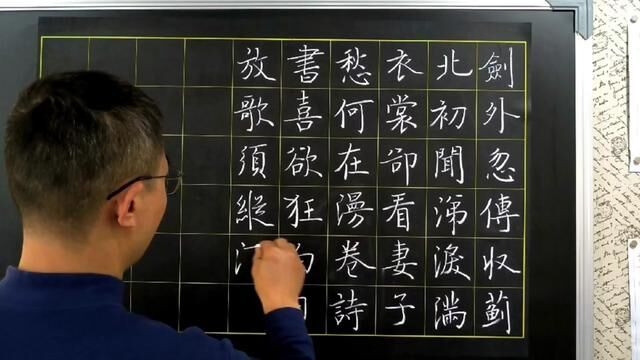 劍外忽傳收薊
北初聞涕淚滿
衣裳卻看妻子
愁何在漫卷詩
書喜欲狂
放歌須縱